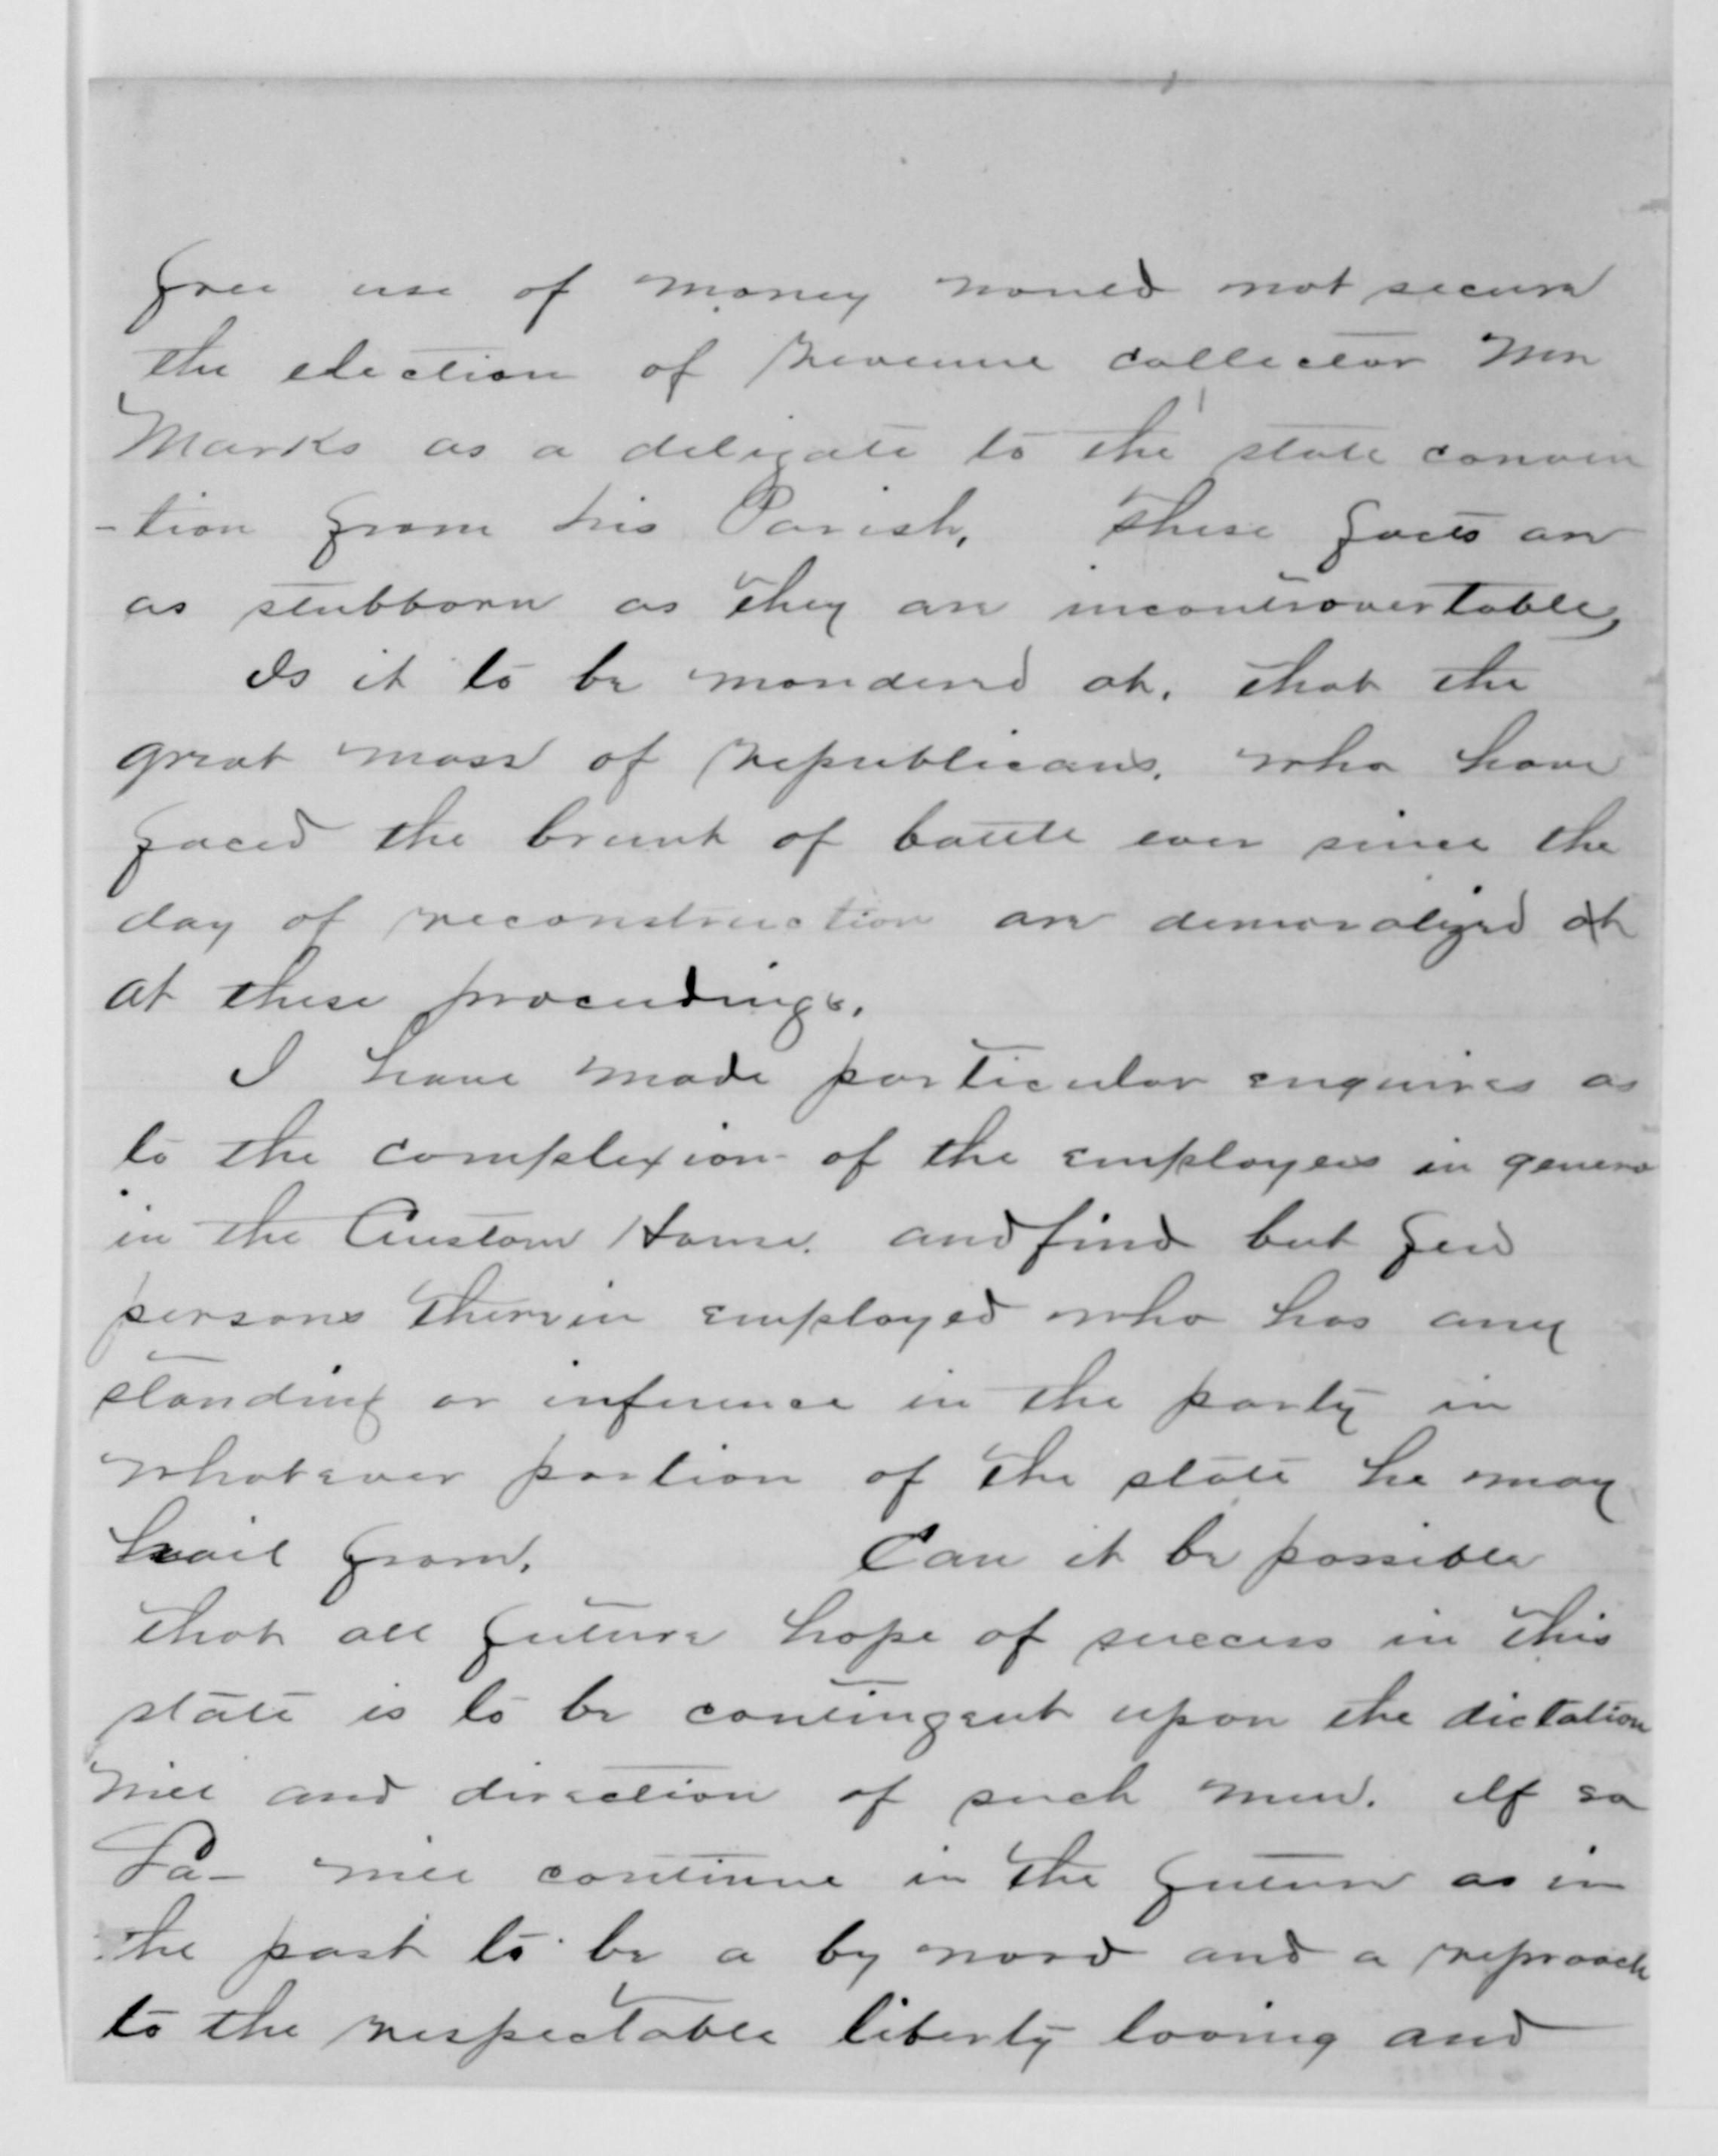 free use of money would not secure
the election of revenue collector Mr
Marks as a deligate to the state conven
-tion from his Parish. These facts are
as stubborn as they are incontrovertable,
Is it to be wondered at. that the
great mass of republicans. who have
faced the brunt of battle ever since the
day of reconstruction are demoralized at
at these proceedings.
I have made particular enquires as
to the complexion of the employees in genera
in the Custom House. and find but few
persons therein employed who has any
standing or infuence in the party in
whatever portion of the state he may
hail from. Can it be possible
that all future hope of success in this
state is to be contingent upon the dictation
will and direction of such men. If so
La- will continue in the future as in
the past to be a by word and a reproach
to the respectable liberty loving and